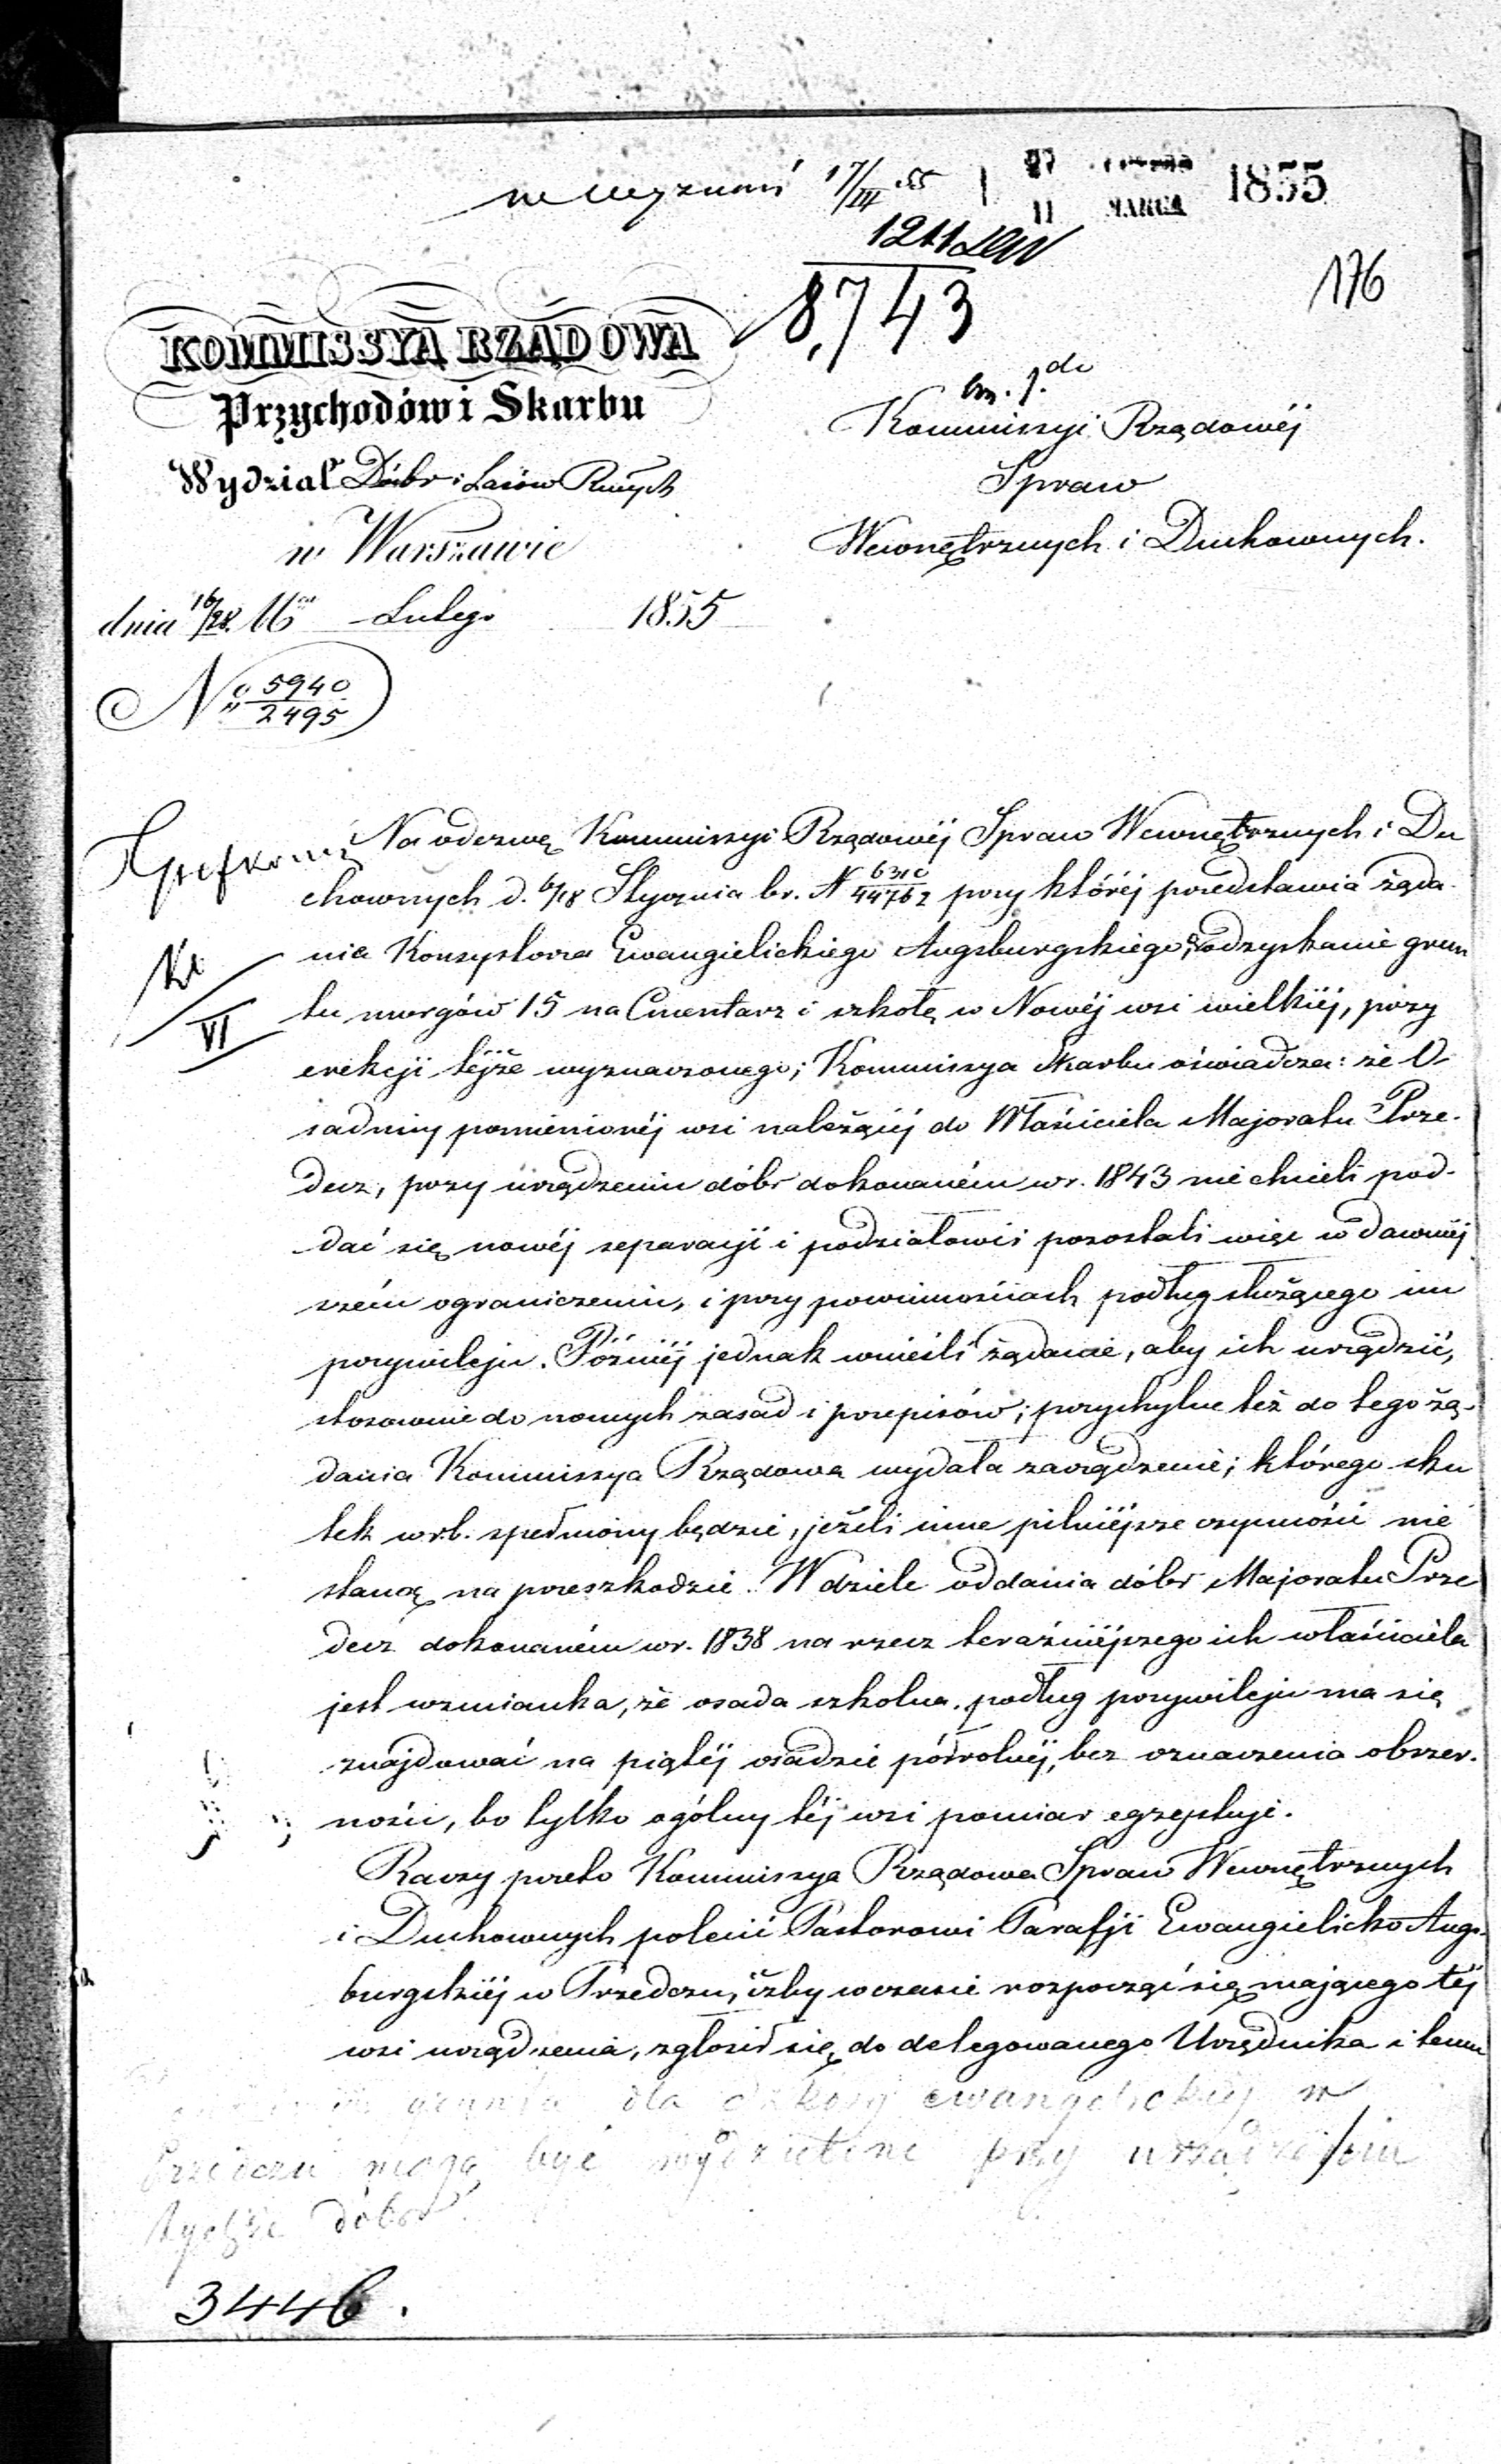 17/III 55
11 MARCA 1855
8,743
176
KOMMISSYA RZĄDOWA
Przychodów i Skarbu
Wydział Dóbr i Lasów Rząych
w Warszawie
dnia 16/28 Lutego 1855
No 5940/2495
do
Kommissyi Rządowéj
Spraw
Wewnętrznych i Duchownych.
Na odezwę Kommissyi Rządowéj Spraw Wewnętrznych i Du
chownych d. 6/18 Stycznia br. N 6310/44762 przy któréj przedstawia żąda
nia Konsystorza Ewangielickiego Augsburgskiego, o odzyskanie grun
tu morgów 15 na Cmentarz i szkołę w Nowéj wsi wielkiéj, przy
erekcji téjże wyznaczonego; Kommissya Skarbu oświadcza: że O-
sadnicy pomienionéj wsi należącéj do Właściciela Majoratu Prze-
decz, przy urządzeniu dóbr dokonaném w r. 1843 nie chcieli pod-
dać się nowéj separacji i podziałowi i pozostali więc w dawniéj
szém ograniczeniu, i przy powinnościach podług służącego im
przywileju. Późniéj jednak wnieśli żądanie, aby ich urządzić,
stosownie do nowych zasad i przepisów; przychylne też do tego żą-
dania Kommissya Rządowa wydała zarządzenie; którego sku
tek w r.b. spełniony będzie, jeżeli inne pilniéjsze czynności nie
staną na przeszkodzie. W dziele oddania dóbr Majoratu Prze
decz dokonaném w r. 1838 na rzecz teraźniéjszego ich właściciela
jest wzmianka, że osada szkolna podług przywileju ma się
znajdować na piątéj osadzie półrolnéj, bez oznaczenia obszer-
ności, bo tylko ogólny téj wsi pomiar egzystuje.
Raczy przeto Kommissya Rządowa Spraw Wewnętrznych
i Duchownych polecić Pastorowi Parafji Ewangielicko Augs-
burgskiéj w Przedczu, iżby w czasie rozpocząć się mającego téj
wsi urządzenia, zgłosił się do delegowanego Urzędnika i temu
grunta dla szkoły ewangelickiej w
Przedczu mogą być wydzielone przy urządzeniu
tychże dóbr.
3446.